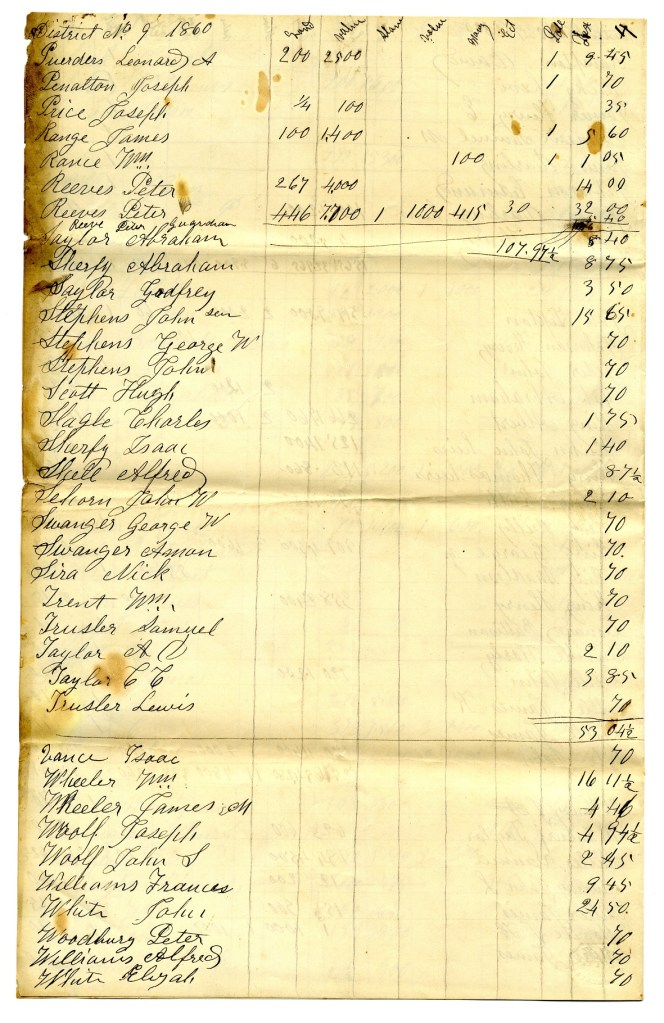 District No 9 1860 Land value Slave value Poll Tax 4
Puerders Leonard A 200 2500 1 9 45
Penatton Joseph 1 70
Price Joseph 1/4 100 35
Range James 100 1,400 1 5 60
Rance Wm 100 1 1 05
Reeves Peter 267 4000 14 00
Reeves Peter 446 7,100 1 1000 415 30 32 00
Reeve Guardian 40
Taylor Abraham 107.97½ 8 40
Sherfy Abraham 8 75
Saylor Godfrey 3 50
Stephens John sen 15 65
Stephens George W 70
Stephens John 70
Scott Hugh 70
Slagle Charles 1 75
Sherfy Isaac 1 40
Shell Alfred 87½
Sehorn John W 2 10
Swanger George W 70
Swanger Amon 70.
Sira Nick 70
Trent Wm. 70
Trusler Samuel 70
Taylor A 2 10
Taylor C C 3 85
Trusler Lewis 70
53 04½
Vance Isaac 70
Wheeler Wm 16 11½
Wheeler James M 4 46
Woolf Joseph 4 94½
Woolf John S 2 45
Williams Frances 9 45
White John 24 50.
Woodbury Peter 70
Williams Alfred 70
White Elijah 70